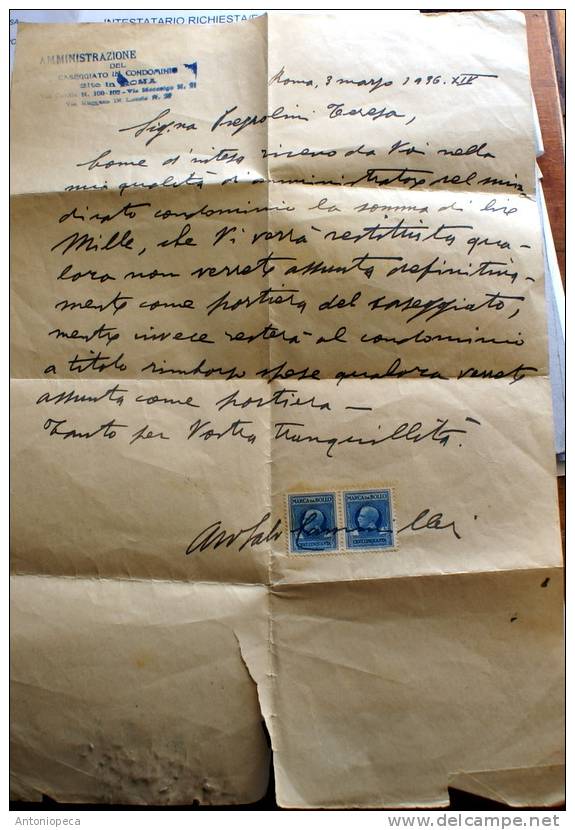 INTESTATARIO RICHIESTA
AMMINISTRAZIONE
DEL
CASEGGIATO IN CONDOMINIO
Sito in ROMA
N. 100-102 - Via Mocenigo N. 21
Roma, 3 marzo 1936. XIV
Sig.na Teresa,
Come d'inteso ricevo da Voi nella
mia qualità di amministratore del sum
dicato condominio la somma di lire
Mille, che Vi verrà restituita qua-
lora non verrete assunta definitiva-
mente come portiera del caseggiato,
mentre invece resterà al condominio
a titolo rimborso spese qualora verrete
assunta come portiera —
Tanto per Vostra tranquillità.
MARCA DA BOLLO MARCA DA BOLLO
CENT. CINQUANTA CENT. CINQUANTA
Antoniopeca
delcampe.net